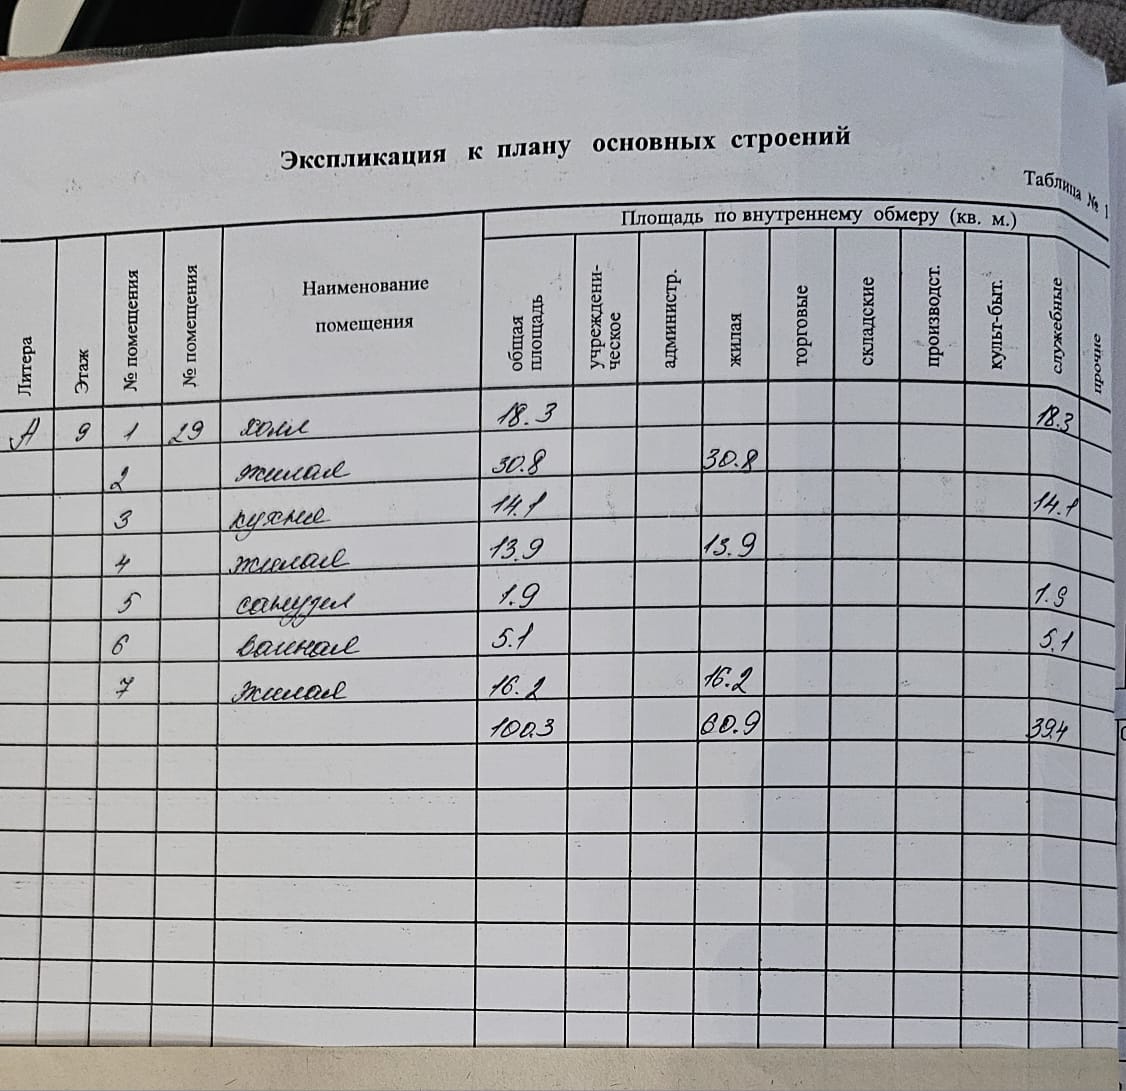 Экспликация к плану основных строений
Таблица № 1
Площадь по внутреннему обмеру (кв. м.)
Литера Этаж № помещения № помещения Наименование помещения общая площадь учреждени-ческое администр. жилая торговые складские производст. культ-быт. служебные прочие
А 9 1 29 холл 18.3 18.3
2 жилая 30.8 30.8
3 кухня 14.1 14.1
4 жилая 13.9 13.9
5 санузел 1.9 1.9
6 ванная 5.1 5.1
7 жилая 16.2 16.2
100.3 60.9 39.4